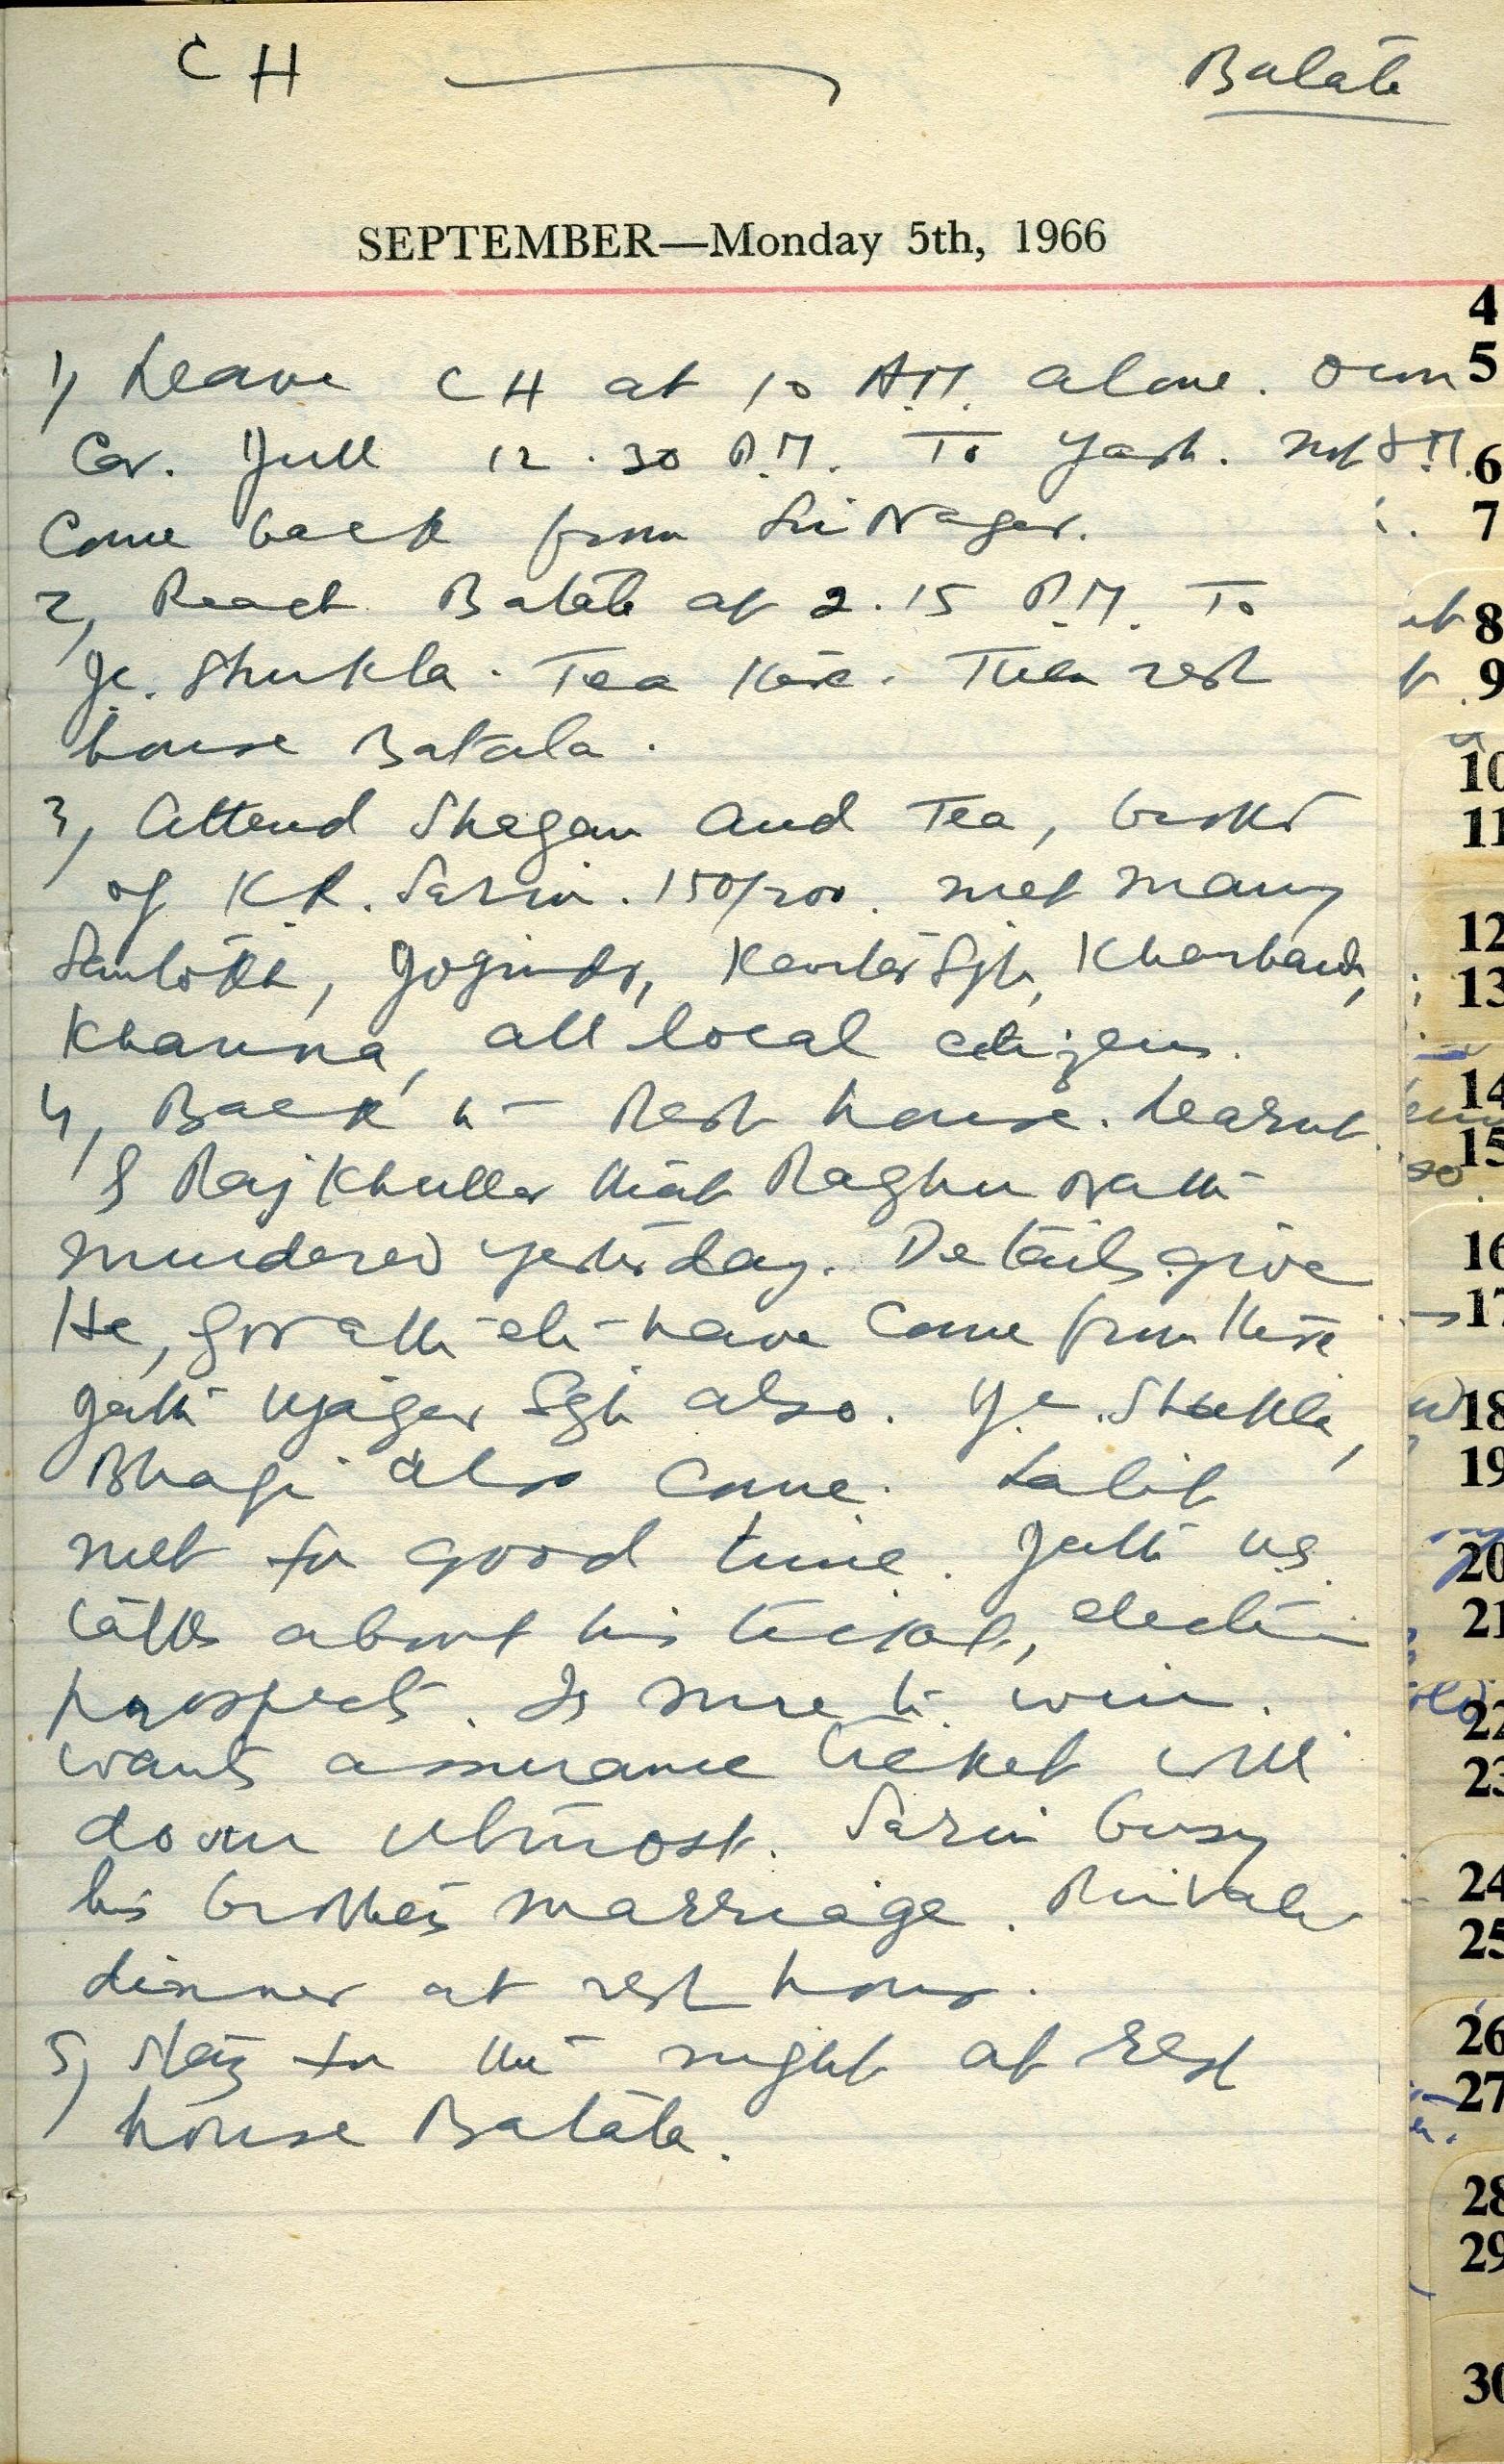 CH Batala
SEPTEMBER—Monday 5th, 1966
1, Leave CH at 10 A.M. alone. Own
Car. Jull 12.30 P.M. To Yash. not
Come back from Sri Nagar.
2, Reach Batala at 2.15 P.M. To
Shukla. Tea there. Then rest
house Batala.
3, Attend Shagan and Tea,
of K.K. Sarin. 150/200. met many
Joginder, Khanna, all local citizens.
4, Back to Rest house. Learnt
Raj Khullar that Raghu Nath
murdered yesterday. Details give
He, have Come from there
Ujagar Sgh also. Shukla,
Bhagi also Come. Lalit
met for good time.
talks about his ticket, election
prospects. Is sure to win.
wants assurance ticket will
utmost. Sarin busy
his brother's marriage. Private
dinner at rest house.
5, Stay for the night at rest
house Batala.
4
5
6
7
8
9
10
11
12
13
14
15
16
17
18
19
20
21
22
23
24
25
26
27
28
29
30